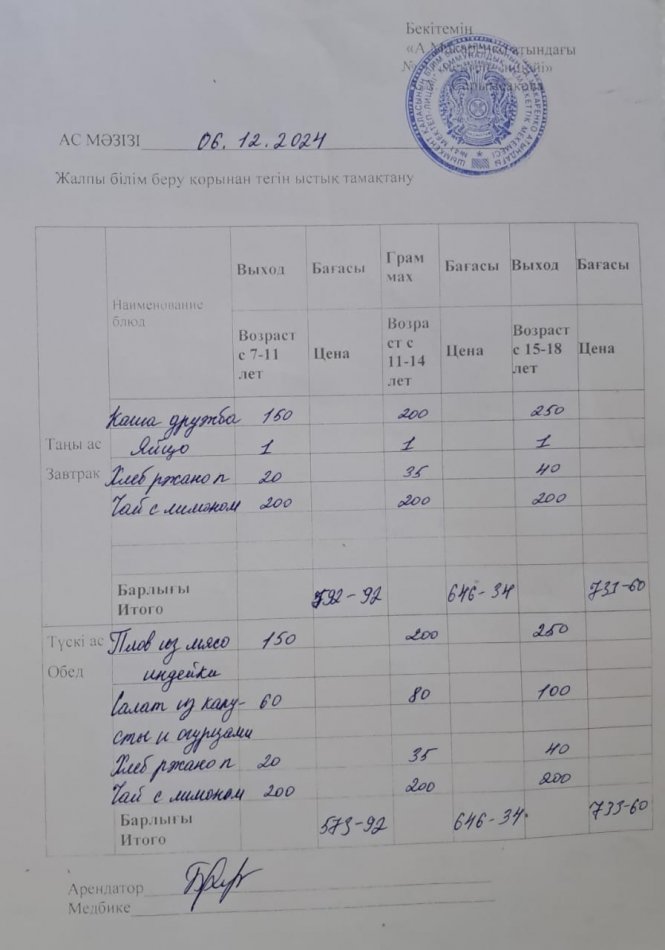 Бекітемін
«А.Макаренко атындағы
№
АС МӘЗІЗІ 06.12.2024
Жалпы білім беру қорынан тегін ыстық тамақтану
Наименование блюд
Выход Бағасы Грам мах Бағасы Выход Бағасы
Возраст с 7-11 лет Цена Возра ст с 11-14 лет Цена Возраст с 15-18 лет Цена
Таңы ас
Завтрак
Каша дружба 150 200 250
Яйцо 1 1 1
Хлеб ржано п 20 35 40
Чай с лимоном 200 200 200
Барлығы
Итого 592-92 646-34 733-60
Түскі ас
Обед
Плов из мясо 150 200 250
индейки
Салат из капу- 60 80 100
сты и огурцами
Хлеб ржано п 20 35 40
Чай с лимоном 200 200 200
Барлығы
Итого 573-92 646-34 733-60
Арендатор
Медбике